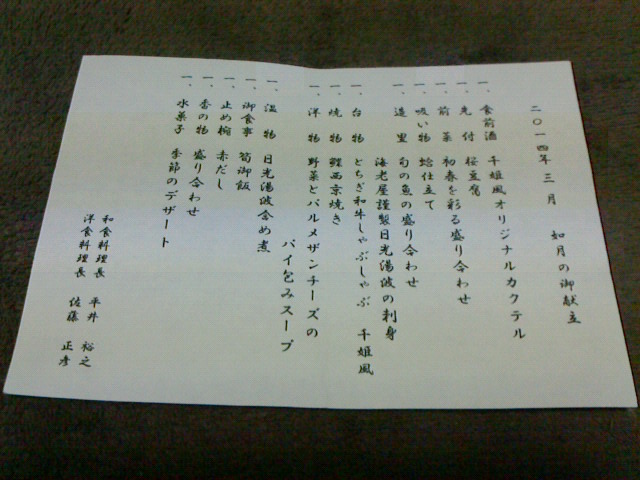 二〇一四年 三月 如月の御献立
一、食前酒 千姫風オリジナルカクテル
一、先付 桜豆腐
一、前菜 初春を彩る盛り合わせ
一、吸い物 蛤仕立て
一、造里 旬の魚の盛り合わせ
海老屋謹製日光湯波の刺身
一、台物 とちぎ和牛しゃぶしゃぶ 千姫風
一、焼物 鰆西京焼き
一、洋物 野菜とパルメザンチーズの
パイ包みスープ
一、温物 日光湯波含め煮
一、御食事 筍御飯
一、止め椀 赤だし
一、香の物 盛り合わせ
一、水菓子 季節のデザート
和食料理長 平井 裕之
洋食料理長 佐藤 正彦